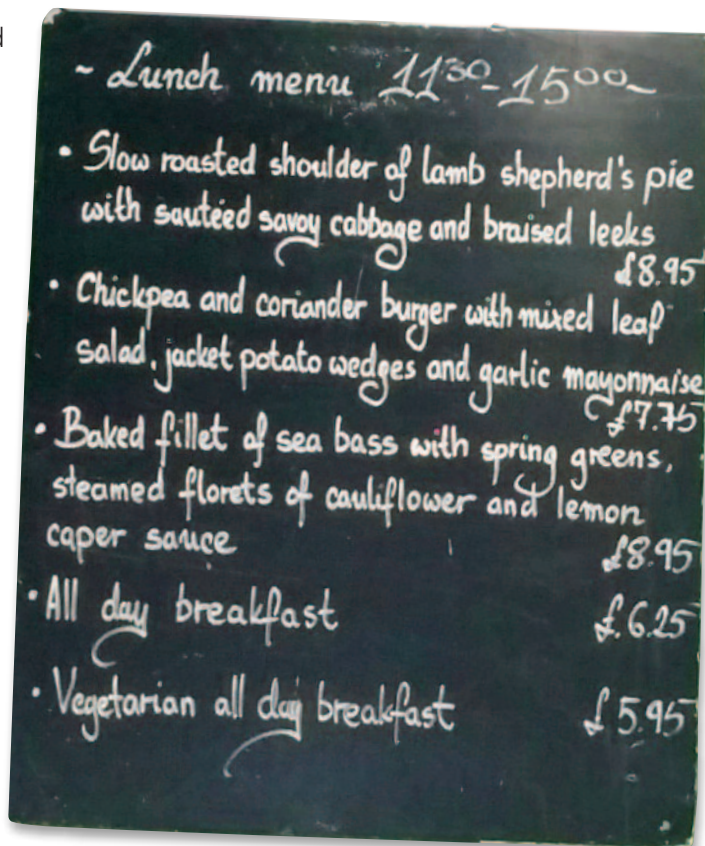 ~ Lunch menu 11³⁰-15⁰⁰~
• Slow roasted shoulder of lamb shepherd's pie
with sautéed savoy cabbage and braised leeks
£8.95
• Chickpea and coriander burger with mixed leaf
salad, jacket potato wedges and garlic mayonnaise
£7.75
• Baked fillet of sea bass with spring greens,
steamed florets of cauliflower and lemon
caper sauce £8.95
• All day breakfast £6.25
• Vegetarian all day breakfast £5.95